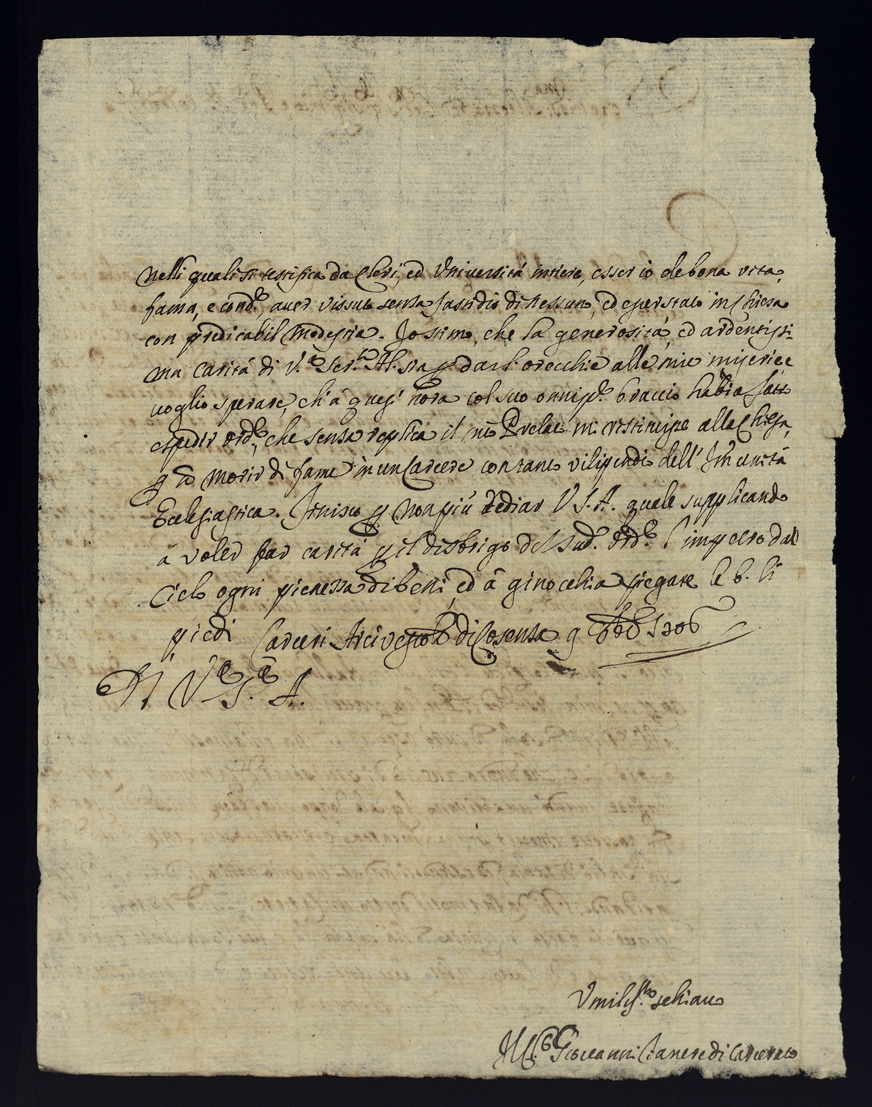 nelli quali si testifica da Cleri, ed Università intiere, esser io de bona vita,
fama, e cond.e, aver vissuto senza fastidio di nessuno, ed esercitato in chiesa
con predicabil modestia. Io stimo, che la generosità, ed ardentissi-
ma carità di V.a Ser.ma Al. sia p dar l'orecchie alle mie miserie e
voglio sperare, ch'a quest'hora col suo onnip.e braccio habbia fatto
espedir ord.e, che senza replica il mio Prelato mi restituisse alla Chiesa,
e morir di fame in un Carcere con tanto vilipendio dell'Imunità
Ecclesiastica. Finisco p non più tediar V.S.A. quale supplicando
à voler far carità p il disbrigo del sud.o ord.e l'impetro dal
Cielo ogni pienezza di beni, ed à ginocchia piegate le b. li
piedi Carceri Arcivescovili di Cosenza 9 1706
Di V.a S.a A.
Umiliss.mo schiavo
Giovanni carcerato